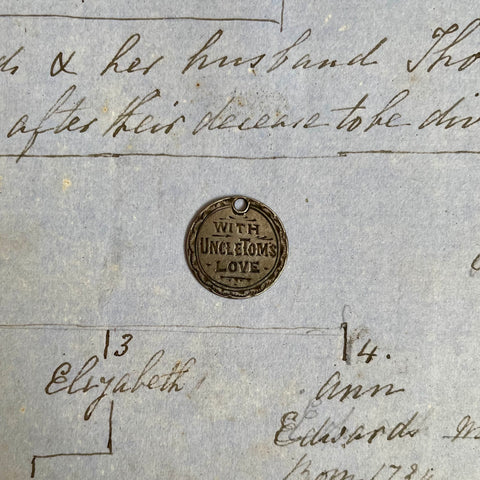 & her husband Tho
after their decease to be div
WITH
UNCLE TOM'S
LOVE
13 14.
Elizabeth Ann
Edwards m
Born 1784